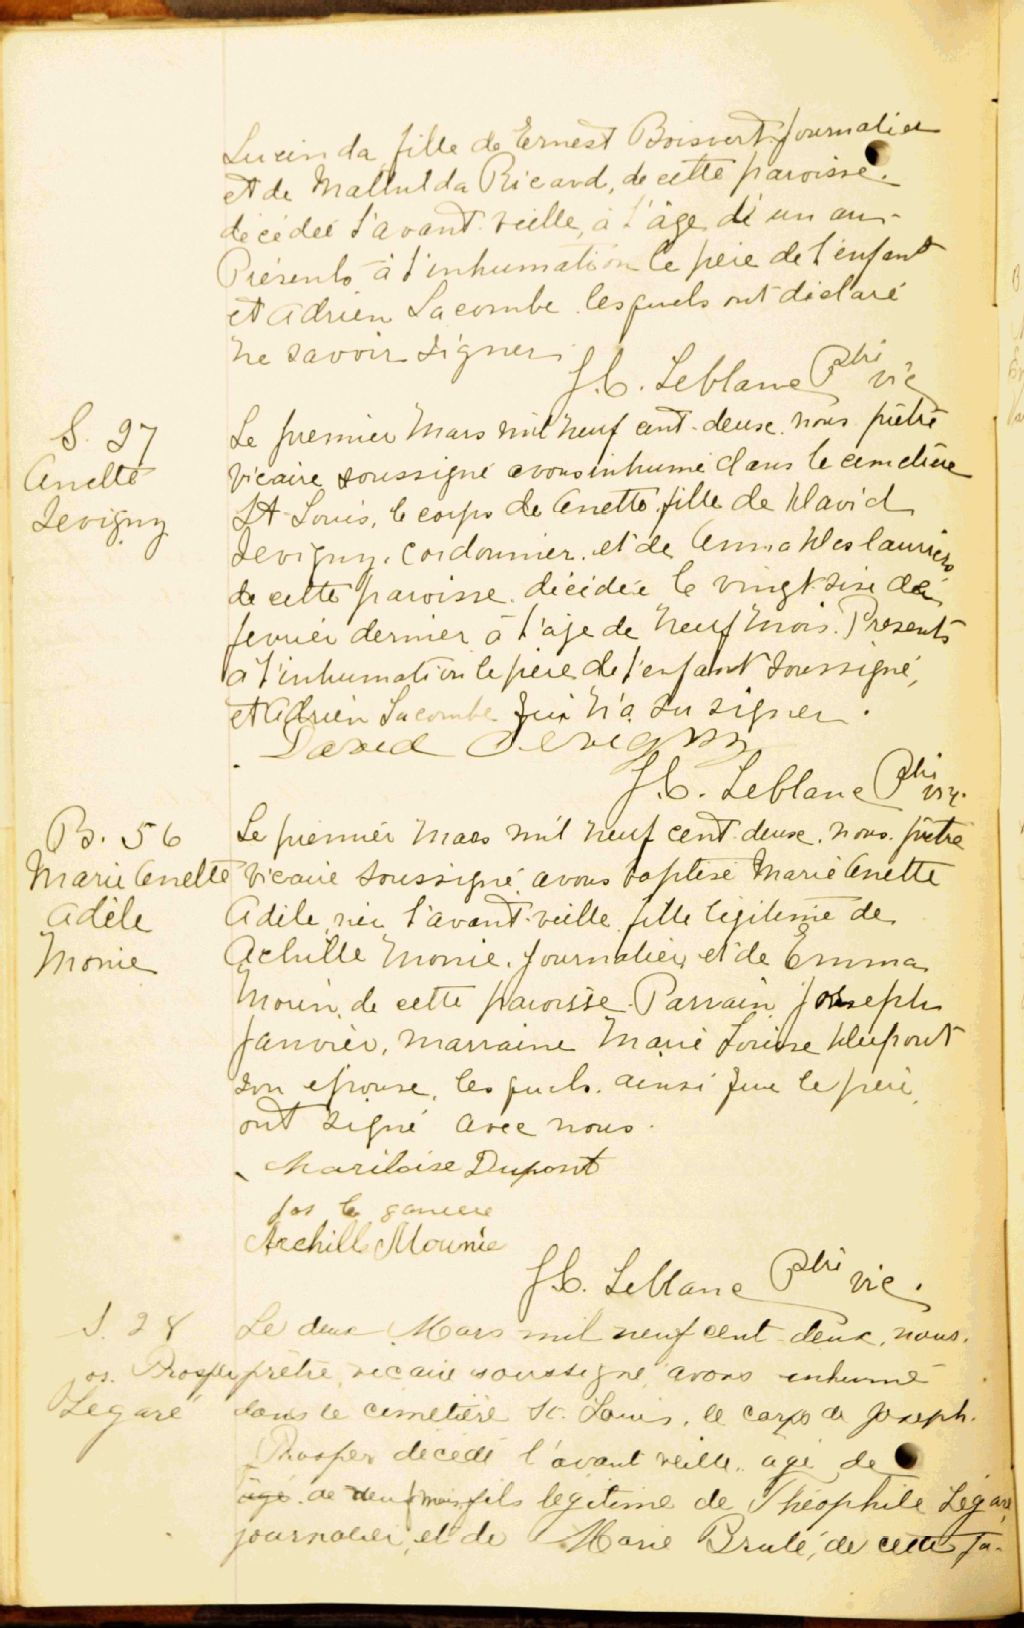 Lucinda, fille de Ernest Boisvert, journalier
et de Mathilda Ricard, de cette paroisse.
décédée l'avant-veille, à l'âge d'un an.
Présents à l'inhumation le père de l'enfant
et Adrien Lacombe lesquels ont déclaré
ne savoir signer.
J.C. Leblanc Ptre vic
S. 27
Le premier Mars mil neuf cent-deux. nous prêtre
Anette
vicaire soussigné avons inhumé dans le cimetière
Levigny
St Louis, le corps de Anette fille de David
Levigny, cordonnier, et de Anna Deslauriers
de cette paroisse. décédée le vingt-six de
fevrier dernier à l'age de neuf mois. Présents
à l'inhumation le père de l'enfant soussigné,
et Adrien Lacombe qui n'a su signer.
David Levigny
J.C. Leblanc Ptre vic.
B. 56
Le premier Mars mil neuf cent-deux, nous prêtre
Marie Anette
vicaire soussigné avons baptisé Marie Anette
Adèle
Adèle, née l'avant-veille, fille légitime de
Monie
Achille Monie, journalier, et de Emma
Morin, de cette paroisse. Parrain Joseph
Janvier, marraine Marie Louise Dupont
son épouse, lesquels, ainsi que le père,
ont signé avec nous.
Mariloise Dupont
Jos
Archille Mounie
J.C. Leblanc Ptre vic.
S. 28
Le deux Mars mil neuf cent-deux, nous,
os. Prosper
prêtre, vicaire soussigné, avons inhumé
Légaré
dans le cimetière St. Louis, le corps de Joseph.
Prosper décédé l'avant veille, âgé de
âgé de neuf mois fils légitime de Théophile Légaré,
journalier, et de Marie Brulé, de cette pa-